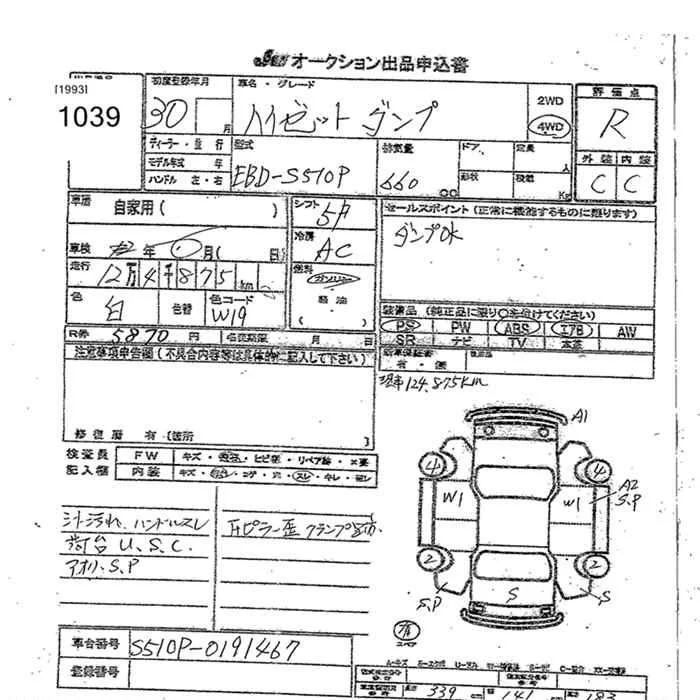 オークション出品申込書
[1993]
1039
初度登録年月
30
月
車名・グレード
ハイゼットダンプ
2WD
4WD
評価点
R
外装 内装
C C
ディーラー・並行
モデル年式 年
ハンドル 左・右
型式
EBD-S510P
排気量
660
CC
ドア
形状
定員
人
積載
Kg
車歴
自家用( )
シフト
5F
冷房
AC
セールスポイント(正常に機能するものに限ります)
ダンプOK
車検
年 月( 日)
走行
12万4千875km
燃料
ガソリン
軽油
( )
色
白
色替
色コード
W19
装備品(純正品に限り○を付けてください)
PS PW ABS エアB AW
SR ナビ TV 本革
R券 5870 円
名変期限 月 日
新車保証書
有・無
取説
注意事項申告欄(不具合内容等は具体的に記入して下さい)
現車124,875km
修復歴 有(箇所 )
検査員
記入欄
FW
キズ・ ・ヒビ・リペア跡・×要
内装
キズ・ ・コゲ・穴・スレ・キレ・
シ汚れ、ハンドルスレ
荷台U.S.C.
アオリ、S.P
ピラー歪 クランプ
A1
4
4
W1
W1
A2
S.P
2
2
S.P
S
S
スペア
車台番号
S510P-0191467
登録番号
339
141
183